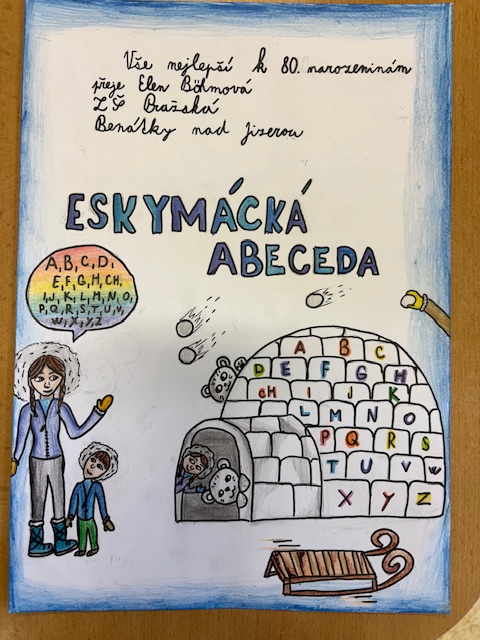 Vše nejlepší k 80. narozeninám
přeje Elen Böhmová
ZŠ Pražská
Benátky nad Jizerou
ESKYMÁCKÁ
ABECEDA
A, B, C, D,
E, F, G, H, CH,
I, J, K, L, M, N, O,
P, Q, R, S, T, U, V,
W, X, Y, Z
A B C
D E F G H
CH I J K
L M N O
P Q R S
T U V W
X Y Z